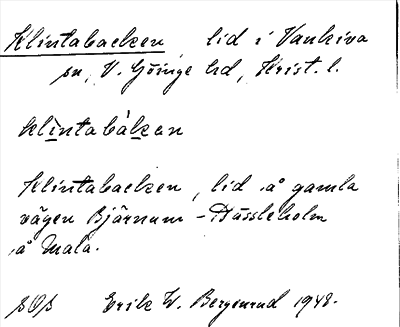 Klintabacken, lid i Vankiva
sn, V. Göinge hd, Krist. l.
klìntabákan
Klintabacken, lid å gamla
vägen Bjärnum - Hässleholm
å Mala.
SOS Erik W. Bergenrud 1948.